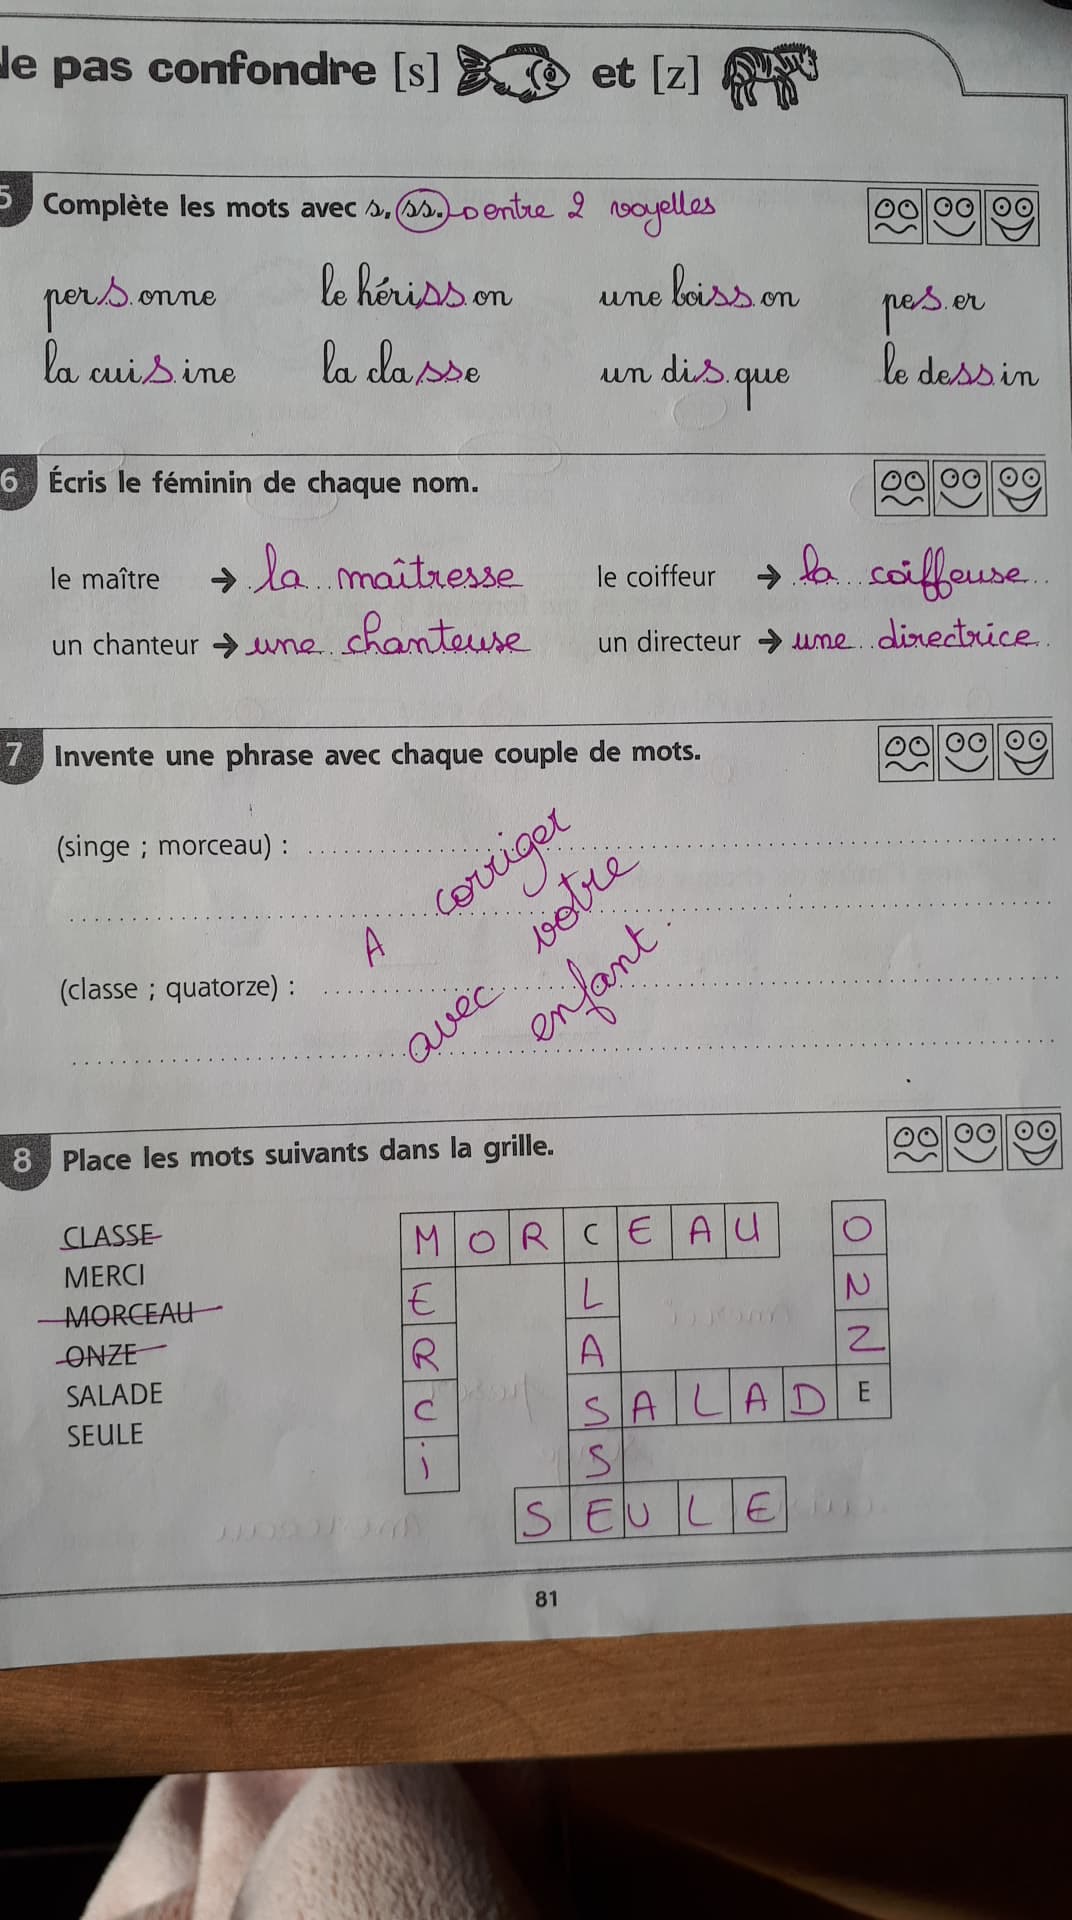 le pas confondre [s] et [z]
5 Complète les mots avec s, ss. entre 2 voyelles
pers.onne le hériss.on une boiss.on pes.er
la cuis.ine la classe un dis.que le dess.in
6 Écris le féminin de chaque nom.
le maître → la maîtresse le coiffeur → la coiffeuse
un chanteur → une chanteuse un directeur → une directrice
7 Invente une phrase avec chaque couple de mots.
(singe ; morceau) :
(classe ; quatorze) :
A corriger
avec votre
enfant.
8 Place les mots suivants dans la grille.
CLASSE
MERCI
MORCEAU
ONZE
SALADE
SEULE
M O R C E A U O
E L N
R A Z
C S A L A D E
i S
S E U L E
81